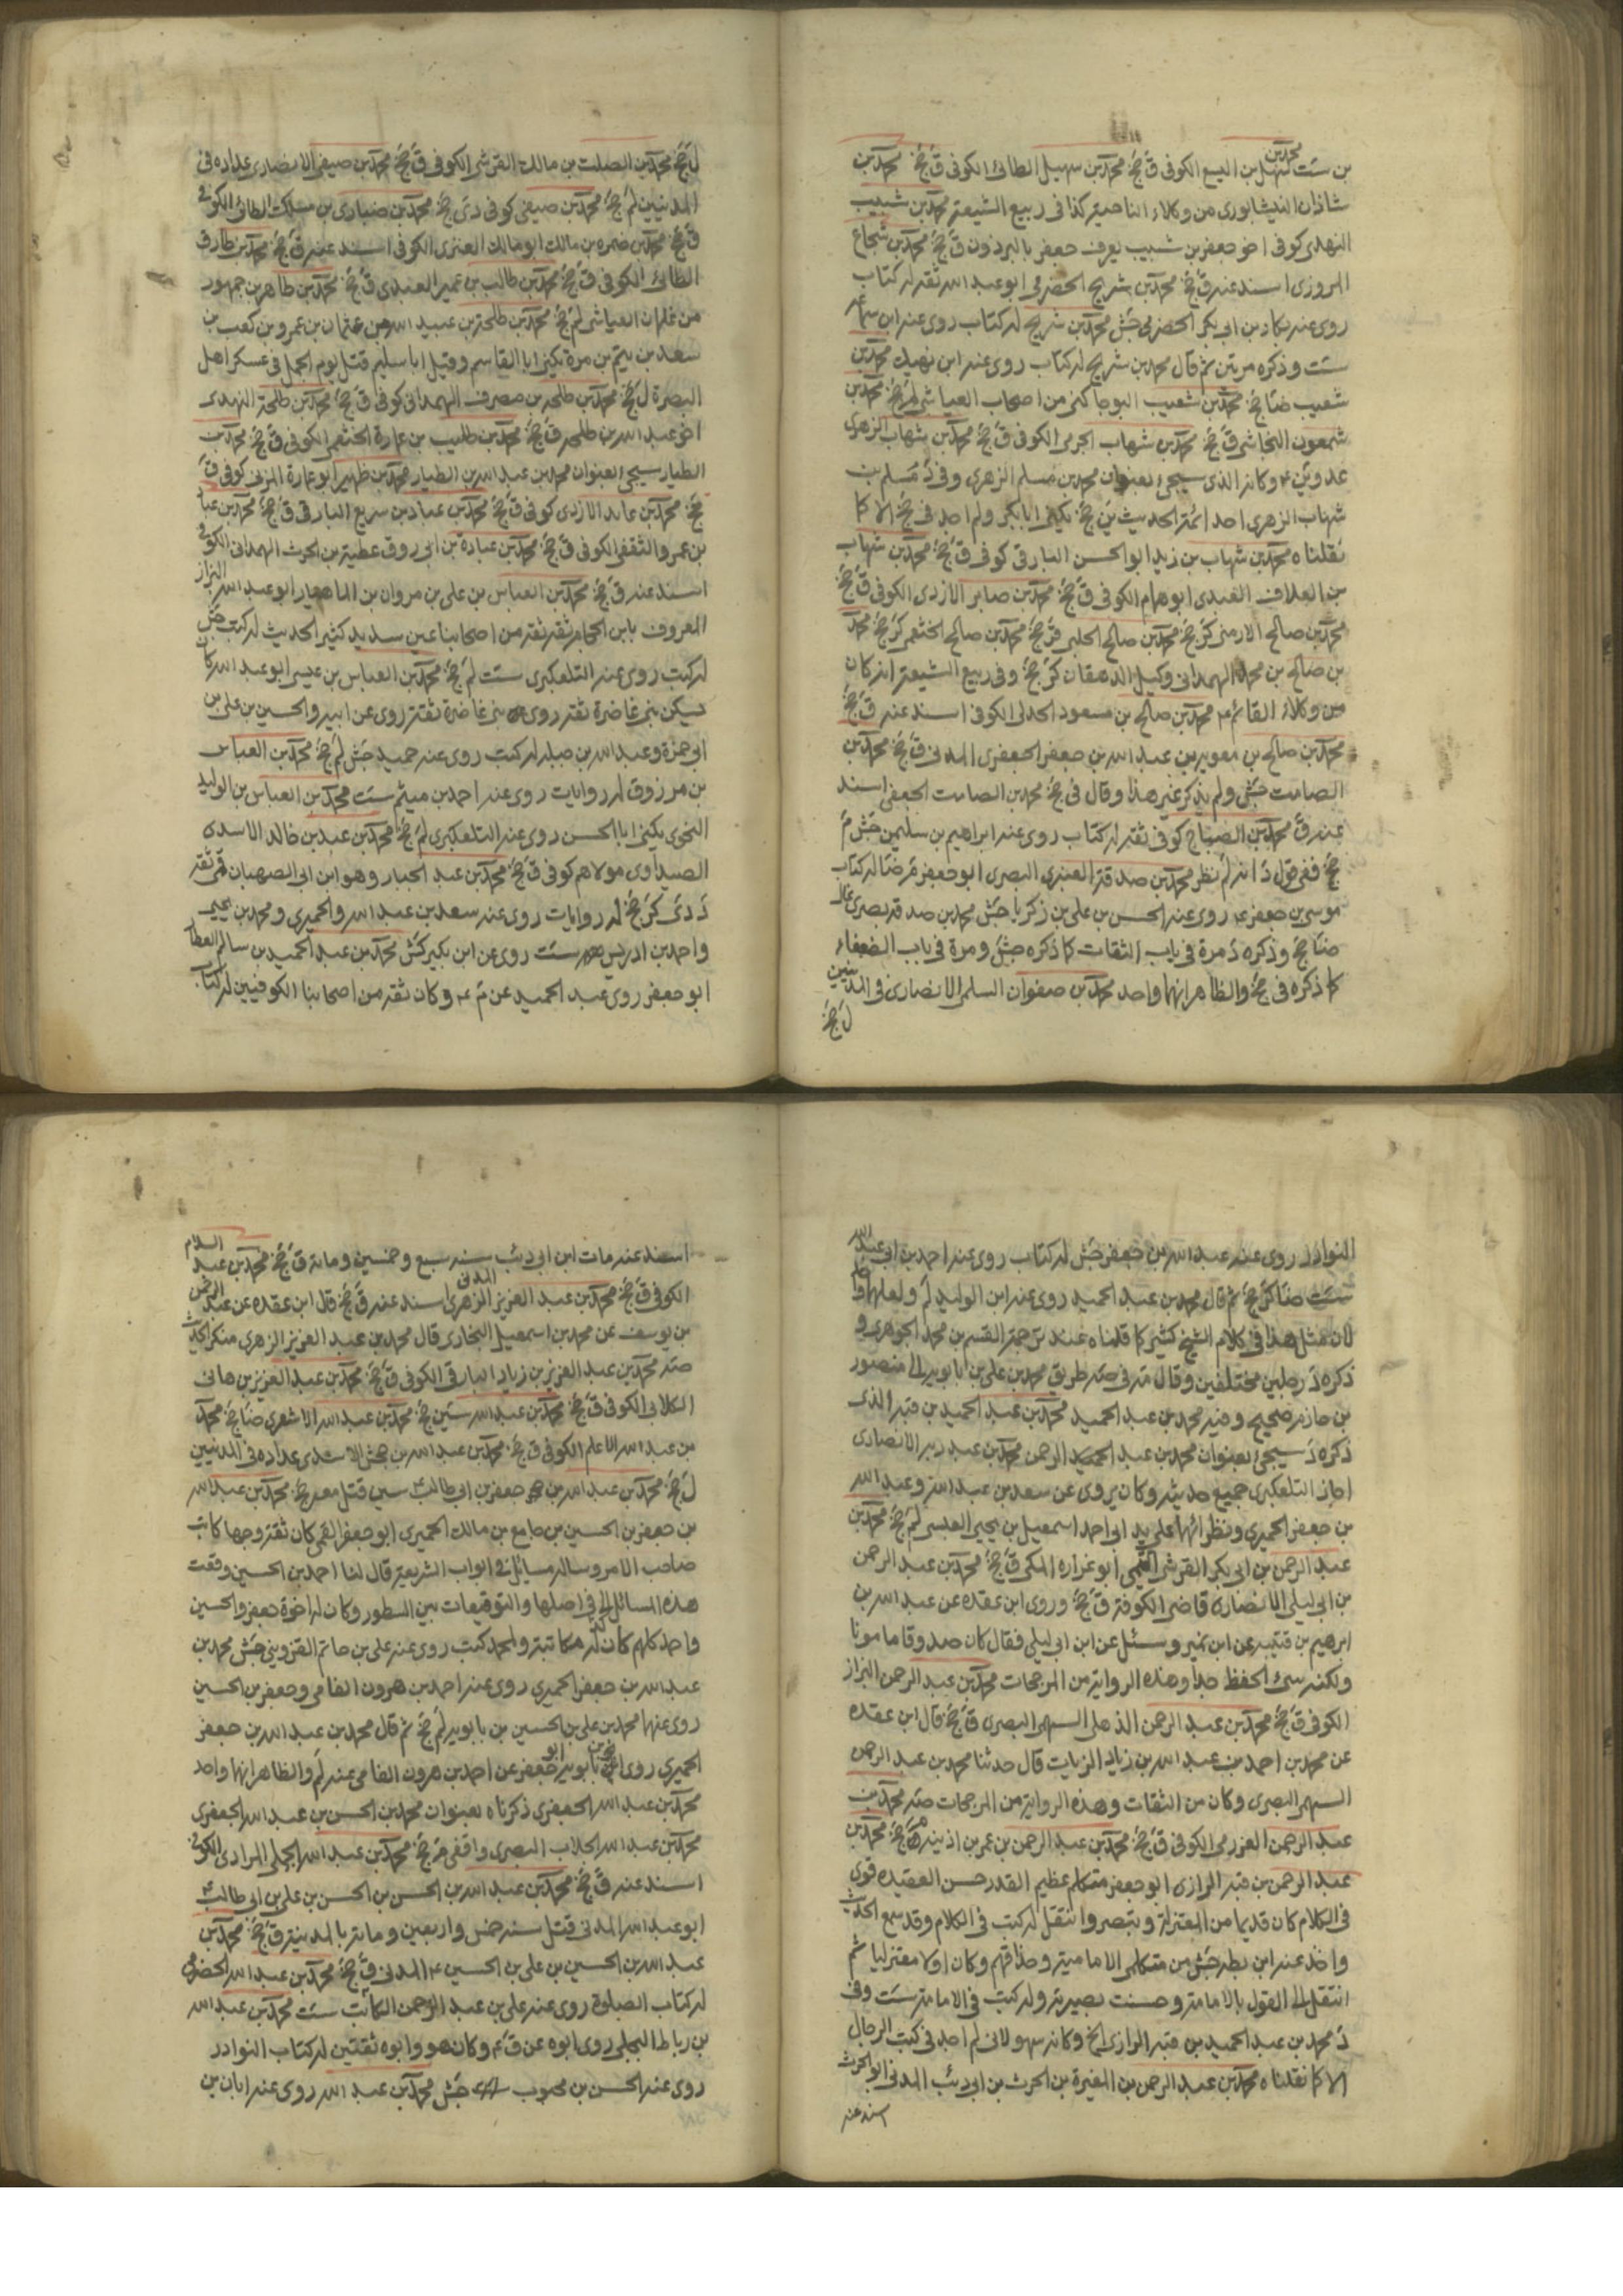 بن ست محمد بن سهل بن اليسع الكوفي ق جخ محمد بن سهيل الطائى الكوفى ق جخ محمد بن
شاذان النيشابورى من وكلاء الناحية كذا فى ربيع الشيعة محمد بن شبيب
النهدى كوفى اخو جعفر بن شبيب يعرف جعفر بالبرذون ق جخ محمد بن شجاع
المروزى اسند عنه ق جخ محمد بن شريح الحضرمى ابو عبد الله ثقة له كتاب
روى عنه بكار بن ابى بكر الحضرمى جش محمد بن شريح له كتاب روى عنه ابن سماعه
ست وذكره مرتين ثم قال محمد بن شريح له كتاب روى عنه ابن نهيك محمد بن
شعيب ضا جخ محمد بن شعيب البوجاكنى من اصحاب العياشى لم جخ محمد بن
شمعون النجاشى ق جخ محمد بن شهاب الجرمى الكوفى ق جخ محمد بن شهاب الزهرى
عدو ين وكانه الذى سيجئ بعنوان محمد بن مسلم الزهرى وفى د مسلم بن
شهاب الزهرى احد ائمة الحديث ين جخ يكنى ابا بكر ولم اجد فى جخ الا كما
نقلناه محمد بن شهاب بن زيد ابو الحسن البارقى كوفى ق جخ محمد بن شهاب
بن العلاف العبدى ابو همام الكوفى ق جخ محمد بن صابر الازدى الكوفى ق جخ
محمد بن صالح الارمنى كر جخ محمد بن صالح الحلبى قر جخ محمد بن صالح الخثعمى كر جخ محمد
بن صالح بن محمد الهمدانى وكيل الدهقان كر جخ وفى ربيع الشيعة انه كان
من وكلاء القائم ع محمد بن صالح بن مسعود الجدلى الكوفى اسند عنه ق جخ
محمد بن صالح بن معوية بن عبد الله بن جعفر الجعفرى المدنى ق جخ محمد بن
الصامت جش ولم يذكر غير هذا وقال فى جخ محمد بن الصامت الجعفى اسند
عنه ق محمد بن الصباح كوفى ثقة له كتاب روى عنه ابراهيم بن سليمن جش م
جخ ففى قول د انه لم نظر محمد بن صدقة العنبرى البصرى ابو جعفر م ضا له كتاب
موسى بن جعفر ع روى عنه الحسن بن على بن زكريا جش محمد بن صدقة بصرى غال
ضا جخ وذكره د مرة فى باب الثقات كما ذكره جش ومرة فى باب الضعفاء
كما ذكره فى جخ والظاهر انهما واحد محمد بن صفوان السلمى الانصارى فى المدنيين
ل جخ
ل جخ محمد بن الصلت بن مالك القرشى الكوفى ق جخ محمد بن صيفى الانصارى عداده فى
المدنيين لم جخ محمد بن صيفى كوفى دى جخ محمد بن ضبارى بن مسلك الطائى الكوفى
ق جخ محمد بن ضمره بن مالك ابو مالك العنزى الكوفى اسند عنه ق جخ محمد بن طارق
الطائى الكوفى ق جخ محمد بن طالب بن عمير العبدى ق جخ محمد بن طاهر بن جمهور
من غلمان العياشى لم جخ محمد بن طلحة بن عبيد الله بن عثمان بن عمرو بن كعب بن
سعد بن تيم بن مرة يكنى ابا القاسم وقيل ابا سليم قتل يوم الجمل فى عسكر اهل
البصرة ل جخ محمد بن طلحه بن مصرف الهمدانى كوفى ق جخ محمد بن طلحة النهدى
اخو عبد الله بن طلحه ق جخ محمد بن طليب بن عمارة الخثعمى الكوفى ق جخ محمد بن
الطيار سيجئ بعنوان محمد بن عبد الله بن الطيار محمد بن ظهير ابو عمارة المزنى كوفى ق
جخ محمد بن عابد الازدى كوفى ق جخ محمد بن عباد بن سريع البارقى ق جخ محمد بن عباد
بن عمرو الثقفى الكوفى ق جخ محمد بن عبادة بن ابى روق عطية بن الحرث الهمدانى الكوفى
اسند عنه ق جخ محمد بن العباس بن على بن مروان بن الماهيار ابو عبد الله البزاز
المعروف بابن الحجام ثقة ثقة من اصحابنا عين سديد كثير الحديث له كتب جش
له كتب روى عنه التلعكبرى ست لم جخ محمد بن العباس بن عيسى ابو عبد الله كان
يسكن بنى غاضرة ثقة روى بنى غاضرة ثقة روى عن ابيه والحسين بن على بن
ابى حمزة وعبد الله بن جبله له كتب روى عنه حميد جش لم جخ محمد بن العباس
بن مرزوق له روايات روى عنه احمد بن ميثم ست محمد بن العباس بن الوليد
النحوى يكنى ابا الحسن روى عنه التلعكبرى لم جخ محمد بن عبد بن خالد الاسدى
الصيداوى مولاهم كوفى ق جخ محمد بن عبد الجبار وهو ابن ابى الصهبان قمى ثقة
د دى كر جخ له روايات روى عنه سعد بن عبد الله والحميرى ومحمد بن يحيى
واحمد بن ادريس ست روى عن ابن بكير كش محمد بن عبد الحميد بن سالم العطار
ابو جعفر روى عبد الحميد عن م ع وكان ثقة من اصحابنا الكوفيين له كتاب
النوادر روى عنه عبد الله بن جعفر جش له كتاب روى عنه احمد بن ابى عبد الله
ست ضا كر جخ ثم قال محمد بن عبد الحميد روى عنه ابن الوليد لم ولعلهما واحد
لان مثل هذا فى كلام الشيخ كثير كما قلناه عند ترجمة القسم بن محمد الجوهرى و
ذكره د رجلين مختلفين وقال مد فى صه طريق محمد بن على بن بابويه الى منصور
بن حازم صحيح وفيه محمد بن عبد الحميد محمد بن عبد الحميد بن قبه الذى
ذكره د سيجئ بعنوان محمد بن عبد الرحمن محمد بن عبد ربه الانصارى
اجاز التلعكبرى جميع حديثه وكان يروى عن سعد بن عبد الله وعبد الله
بن جعفر الحميرى ونظرائهما على يد ابى احمد اسمعيل بن يحيى العبسى لم جخ محمد بن
عبد الرحمن بن ابى بكر القرشى التيمى ابو غراره المكى ق جخ محمد بن عبد الرحمن
بن ابى ليلى الانصارى قاضى الكوفة ق جخ وروى ابن عقده عن عبد الله بن
ابرهيم بن قتيبه عن ابن نمير وسئل عن ابن ابى ليلى فقال كان صدوقا مامونا
ولكنه سئ الحفظ جدا وهذه الرواية من المرجحات محمد بن عبد الرحمن البزاز
الكوفى ق جخ محمد بن عبد الرحمن الذهلى السهمى البصرى ق جخ قال ابن عقده
عن محمد بن احمد بن عبد الله بن زياد الزيات قال حدثنا محمد بن عبد الرحمن
السهمى البصرى وكان من الثقات وهذه الرواية من المرجحات صه محمد بن
عبد الرحمن العزرمى الكوفى ق جخ محمد بن عبد الرحمن بن عمر بن اذينه ق جخ محمد بن
عبد الرحمن بن قبه الرازى ابو جعفر متكلم عظيم القدر حسن العقيده قوى
فى الكلام كان قديما من المعتزلة وتبصر وانتقل له كتب فى الكلام وقد سمع الحديث
واخذ عنه ابن بطه جش من متكلمى الامامية وحذاقهم وكان اولا معتزليا ثم
انتقل الى القول بالامامة وحسنت بصيرته وله كتب فى الامامة ست وفى
د محمد بن عبد الحميد بن قبه الرازى الخ وكانه سهو لانى لم اجد فى كتب الرجال
الا كما نقلناه محمد بن عبد الرحمن بن المغيرة بن الحرث بن ابى ذئب المدنى ابو الحرث
اسند عنه
اسند عنه مات ابن ابى ذئب سنه سبع وخمسين ومائة ق جخ محمد بن عبد السلام
الكوفى ق جخ محمد بن عبد العزيز الزهرى المدنى اسند عنه ق جخ قال ابن عقده عن عبد الرحمن
بن يوسف عن محمد بن اسمعيل البخارى قال محمد بن عبد العزيز الزهرى منكر الحديث
صه محمد بن عبد العزيز بن زياد البارقى الكوفى ق جخ محمد بن عبد العزيز بن هانى
الكلابى الكوفى ق جخ محمد بن عبد الله سين جخ محمد بن عبد الله الاشعرى ضا جخ محمد
بن عبد الله الاعلم الكوفى ق جخ محمد بن عبد الله بن جحش الاسدى عداده فى المدنيين
ل جخ محمد بن عبد الله بن جعفر بن ابى طالب ع سين قتل معه جخ محمد بن عبد الله
بن جعفر بن الحسين بن جامع بن مالك الحميرى ابو جعفر القمى كان ثقة وجها كاتب
صاحب الامر وساله مسائل فى ابواب الشريعة قال لنا احمد بن الحسين وقعت
هذه المسائل الى فى اصلها والتوقيعات بين السطور وكان له اخوة جعفر والحسين
واحمد كلهم كان له مكاتبة ولمحمد كتب روى عنه على بن حاتم القزوينى جش محمد بن
عبد الله بن جعفر الحميرى روى عنه احمد بن هرون الفامى وجعفر بن الحسين
روى عنهما محمد بن على بن الحسين بن بابويه لم جخ ثم قال محمد بن عبد الله بن جعفر
الحميرى روى ابن بابويه ابو جعفر عن احمد بن هرون الفامى عنه لم والظاهر انهما واحد
محمد بن عبد الله الجعفرى ذكرناه بعنوان محمد بن الحسن بن عبد الله الجعفرى
محمد بن عبد الله الجلاب البصرى واقفى م جخ محمد بن عبد الله الجملى المرادى الكوفى
اسند عنه ق جخ محمد بن عبد الله بن الحسن بن الحسن بن على بن ابى طالب ع
ابو عبد الله المدنى قتل سنه خمس واربعين ومائة بالمدينة ق جخ محمد بن
عبد الله بن الحسين بن على بن الحسين ع المدنى ق جخ محمد بن عبد الله الحضرمى
له كتاب الصلوة روى عنه على بن عبد الرحمن الكاتب ست محمد بن عبد الله
بن رباط البجلى روى ابوه عن ق ع وكان هو وابوه ثقتين له كتاب النوادر
روى عنه الحسن بن محبوب جش محمد بن عبد الله روى عنه ابان بن